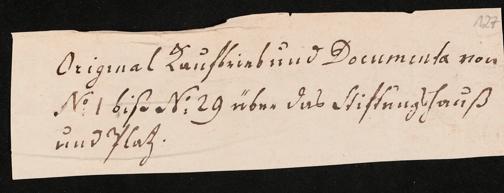 127
Original Kaufbrieb und Documenta von
No: 1 biß No: 29 über das Stiftungshauß
und Platz.